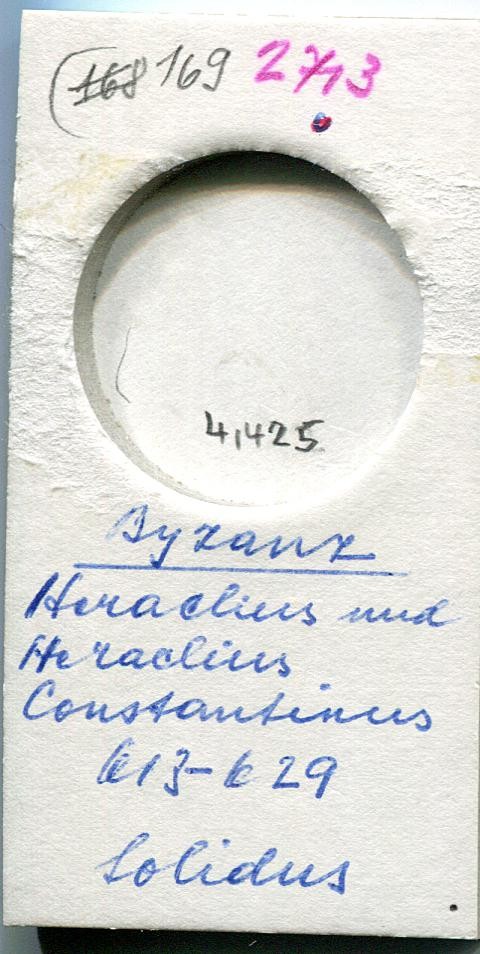 (168 169 2713
4,425
Byzanz
Heraclius und
Heraclius
Constantinus
613-629
Solidus